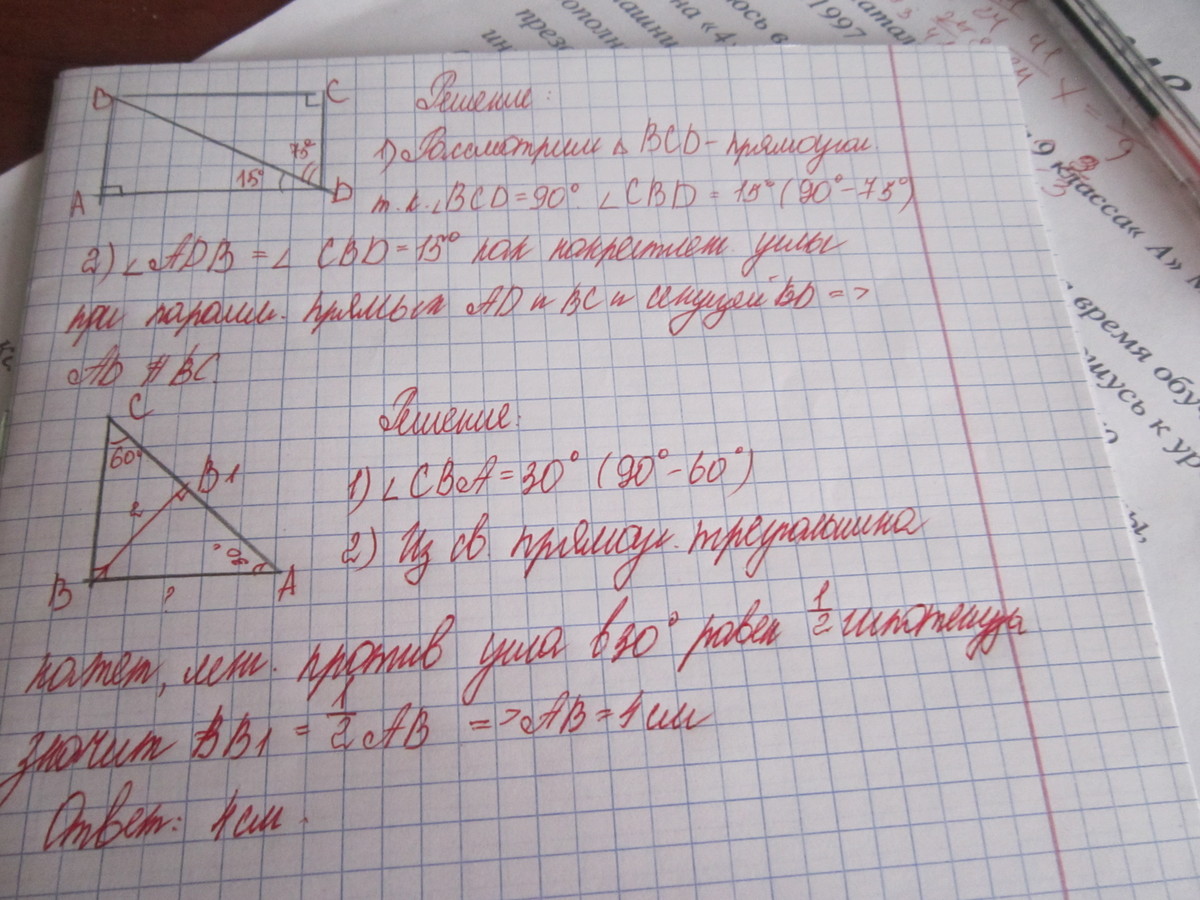 B C
75°
15°
A D
Решение:
1) Рассмотрим △ BCD - прямоугол
т.к. ∠BCD = 90° ∠CBD = 15° (90°-75°)
2) ∠ADB = ∠ CBD = 15° как накрестлеж. углы
при паралл. прямых AD и BC и секущей BD =>
AD ∥ BC.
C
60°
B1
2
30°
B ? A
Решение:
1) ∠CBA = 30° (90°-60°)
2) Из св. прямоуг. треугольника
катет, леж. против угла в 30° равен 1/2 гипотенузы
значит BB1 = 1/2 AB => AB = 4 см
Ответ: 4 см.
1997
9 класса« А»
время обу